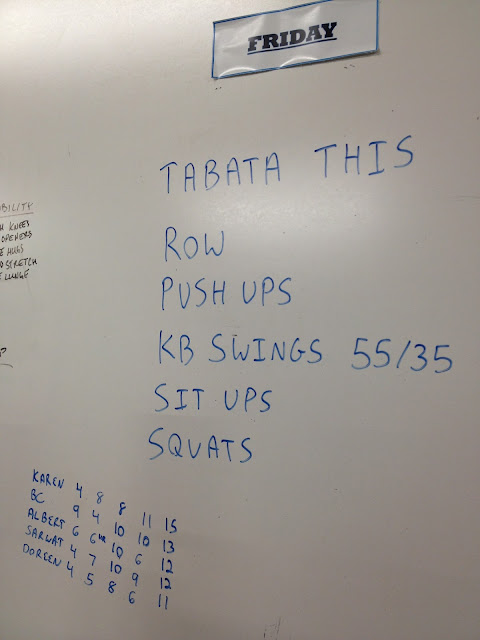 FRIDAY
TABATA THIS
ROW
PUSH UPS
KB SWINGS 55/35
SIT UPS
SQUATS
BILITY
KNEES
OPENERS
HUGS
STRETCH
LUNGE
KAREN 4 8 8 11 15
BC 9 4 10 10 13
ALBERT 6 6 10 6 12
SARWAT 4 7 10 9 12
DOREEN 4 5 8 6 11